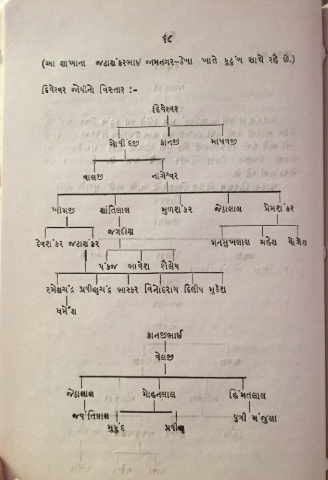 ૬૮
(આ શાખાના જટાશંકરભાઈ જામનગર-ઠેબા ખાતે કુટુંબ સાથે રહે છે.)
દિવેશ્વર જોષીનો વિસ્તાર :-
દિવેશ્વર
ગોવીંદજી કાનજી માધવજી
વાલજી નાગેશ્વર
ખીમજી શાંતિલાલ મુળશંકર જેઠાલાલ પ્રેમશંકર
જગદીશ
દેવશંકર જટાશંકર મનસુખલાલ મહેશ યોગેશ
પંકજ ભાવેશ શૈલેષ
રમેશચંદ્ર પ્રવીણચંદ્ર ભાસ્કર વિનોદરાય દિલીપ મુકેશ
ધર્મેશ
કાનજીભાઈ
વેલજી
જેઠાલાલ મોહનલાલ હિંમતલાલ
જયંતિલાલ પુત્રી મંજુલા
મુકુંદ પ્રવીણ